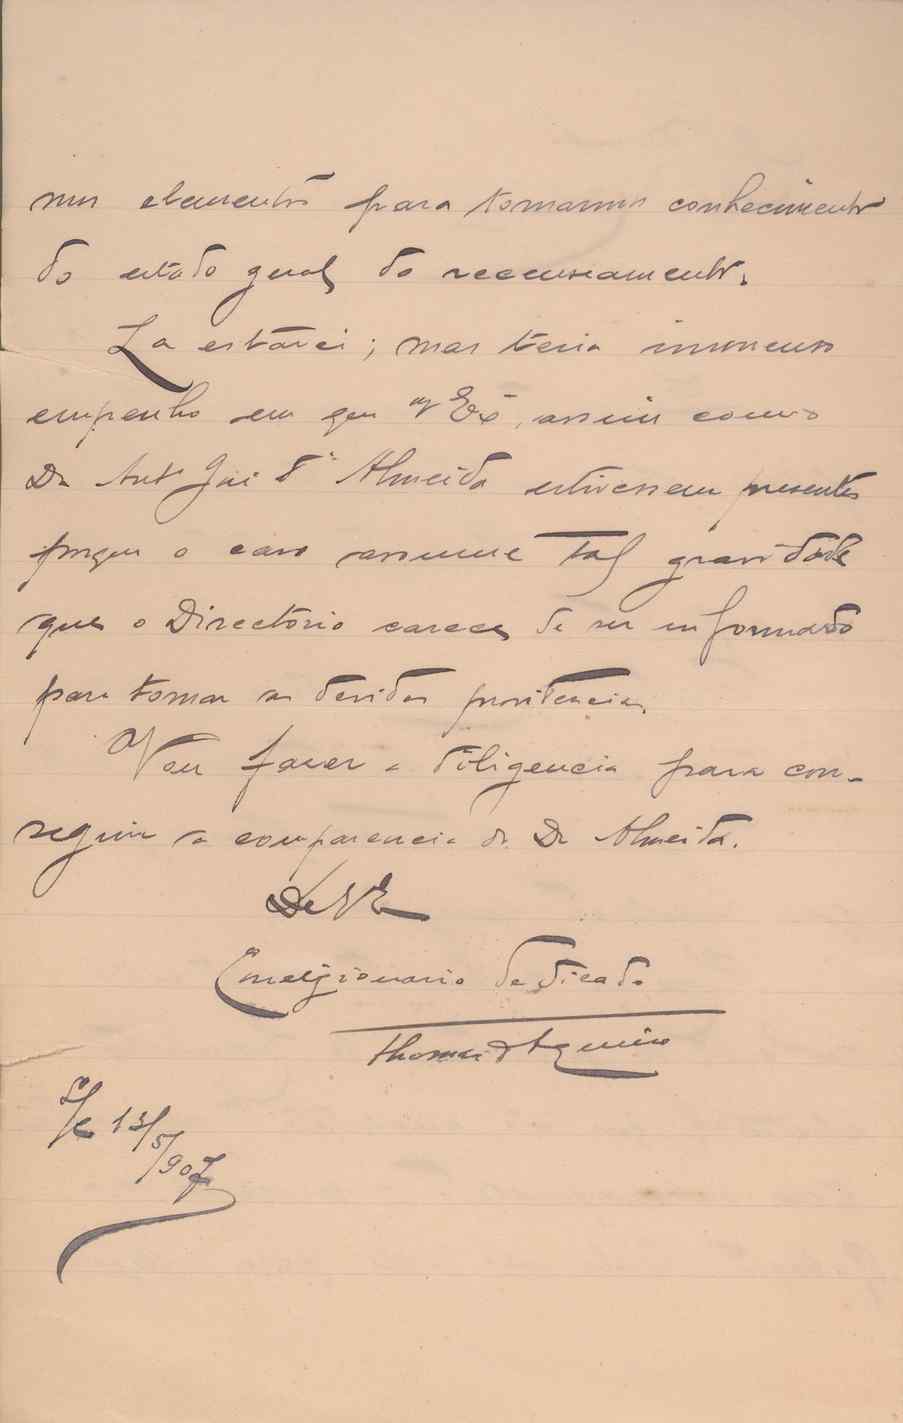 nos elementos para tomarmos conhecimento
do estado geral do recenseamento.
La estarei; mas teria immenso
empenho em que V Exª, assim como
Dr Antº José d'Almeida estivessem presentes
porque o caso assume tal gravidade
que o Directorio carece de ser informado
para tomar as devidas providencias.
Vou fazer a diligencia para con-
seguir a comparencia do Dr Almeida.
De V E
Correligionario dedicado
Thomaz d'Aquino
S/C 13/5/907